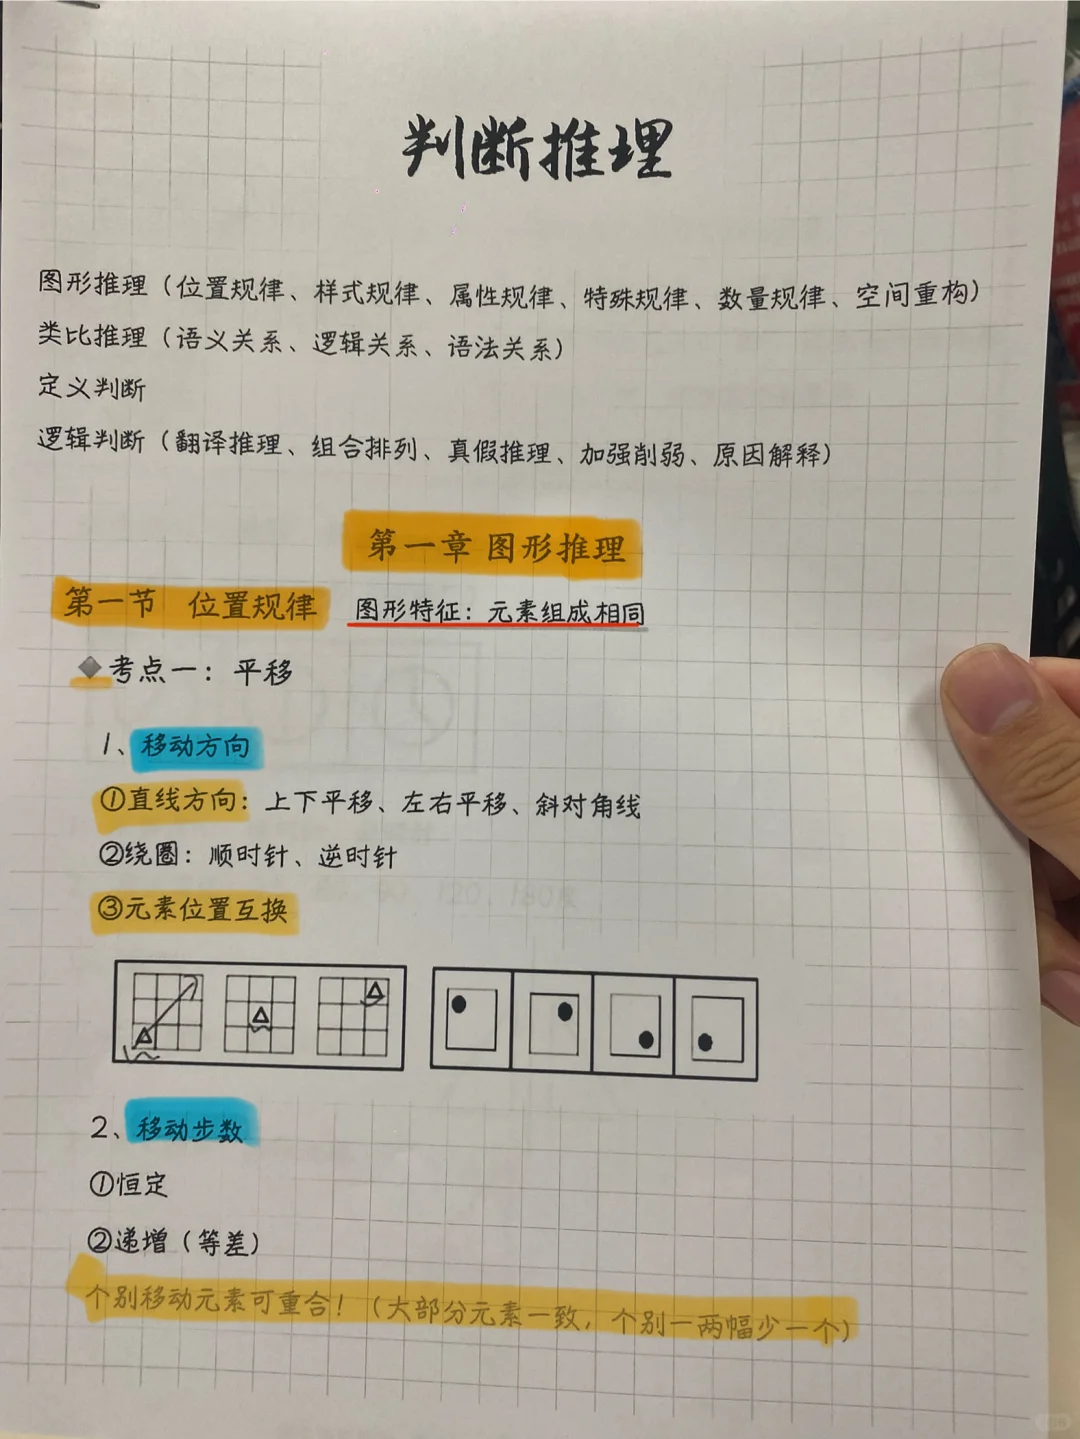 判断推理
图形推理（位置规律、样式规律、属性规律、特殊规律、数量规律、空间重构）
类比推理（语义关系、逻辑关系、语法关系）
定义判断
逻辑判断（翻译推理、组合排列、真假推理、加强削弱、原因解释）
第一章 图形推理
第一节 位置规律 图形特征：元素组成相同
◆考点一：平移
1、移动方向
①直线方向：上下平移、左右平移、斜对角线
②绕圈：顺时针、逆时针
③元素位置互换
2、移动步数
①恒定
②递增（等差）
个别移动元素可重合！（大部分元素一致，个别一两幅少一个）